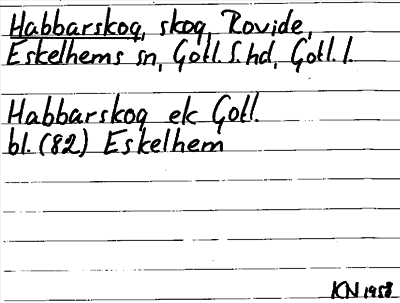 Habbarskog, skog, Rovide,
Eskelhems sn, Gotl. S. hd, Gotl. l.
Habbarskog ek Gotl.
bl. (82) Eskelhem
KN 1958